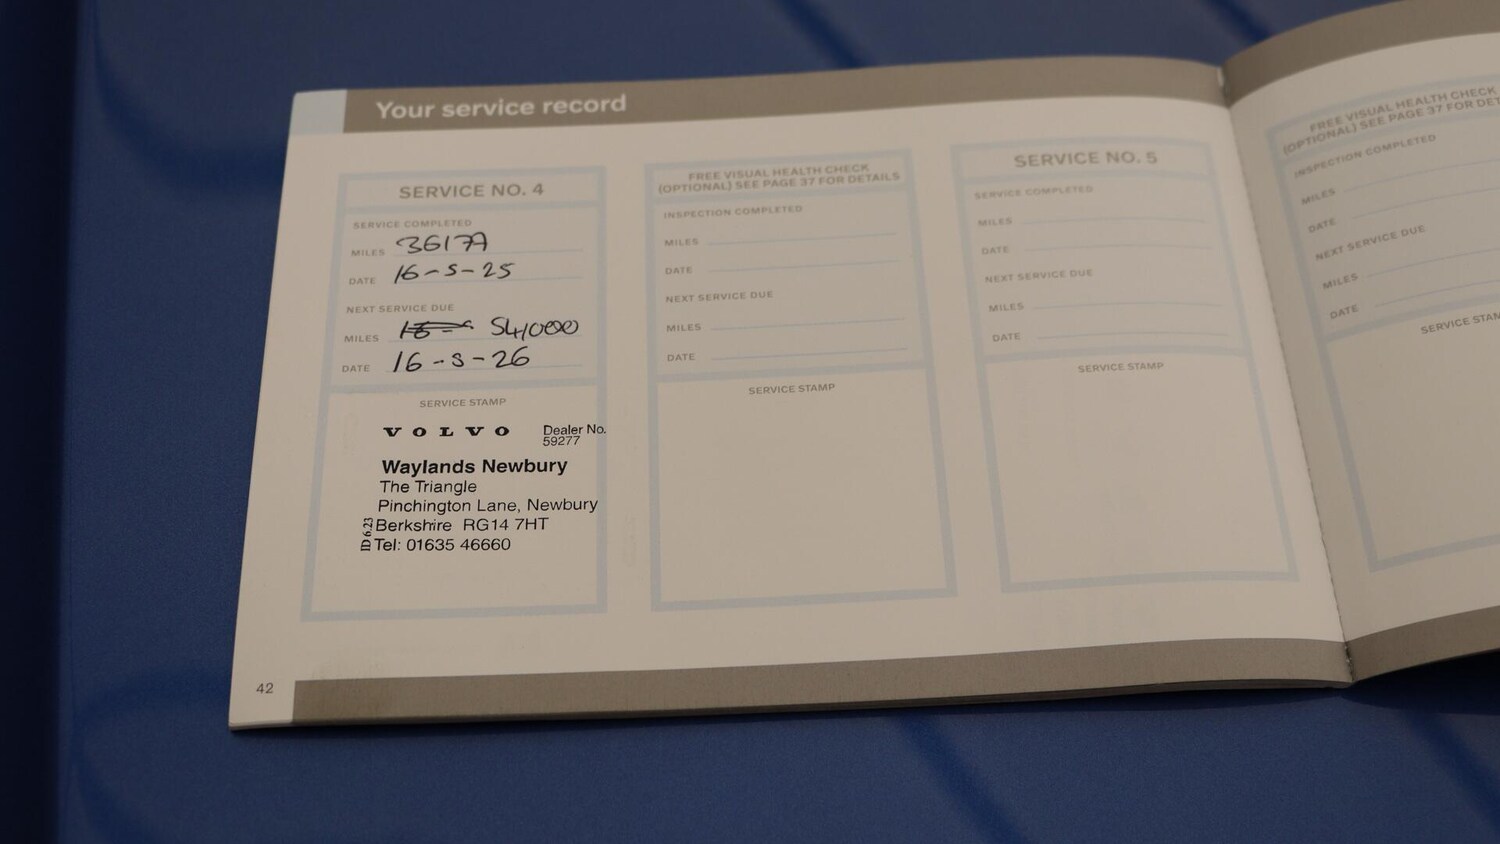 Your service record
SERVICE NO. 4
SERVICE COMPLETED
MILES 36179
DATE 16-5-25
NEXT SERVICE DUE
MILES 54,000
DATE 16-5-26
SERVICE STAMP
VOLVO
Dealer No.
59277
Waylands Newbury
The Triangle
Pinchington Lane, Newbury
Berkshire RG14 7HT
Tel: 01635 46660
ID 6.23
FREE VISUAL HEALTH CHECK
(OPTIONAL) SEE PAGE 37 FOR DETAILS
INSPECTION COMPLETED
MILES
DATE
NEXT SERVICE DUE
MILES
DATE
SERVICE STAMP
SERVICE NO. 5
SERVICE COMPLETED
MILES
DATE
NEXT SERVICE DUE
MILES
DATE
SERVICE STAMP
FREE VISUAL HEALTH CHECK
(OPTIONAL) SEE PAGE 37 FOR DET
INSPECTION COMPLETED
MILES
DATE
NEXT SERVICE DUE
MILES
DATE
SERVICE STAM
42